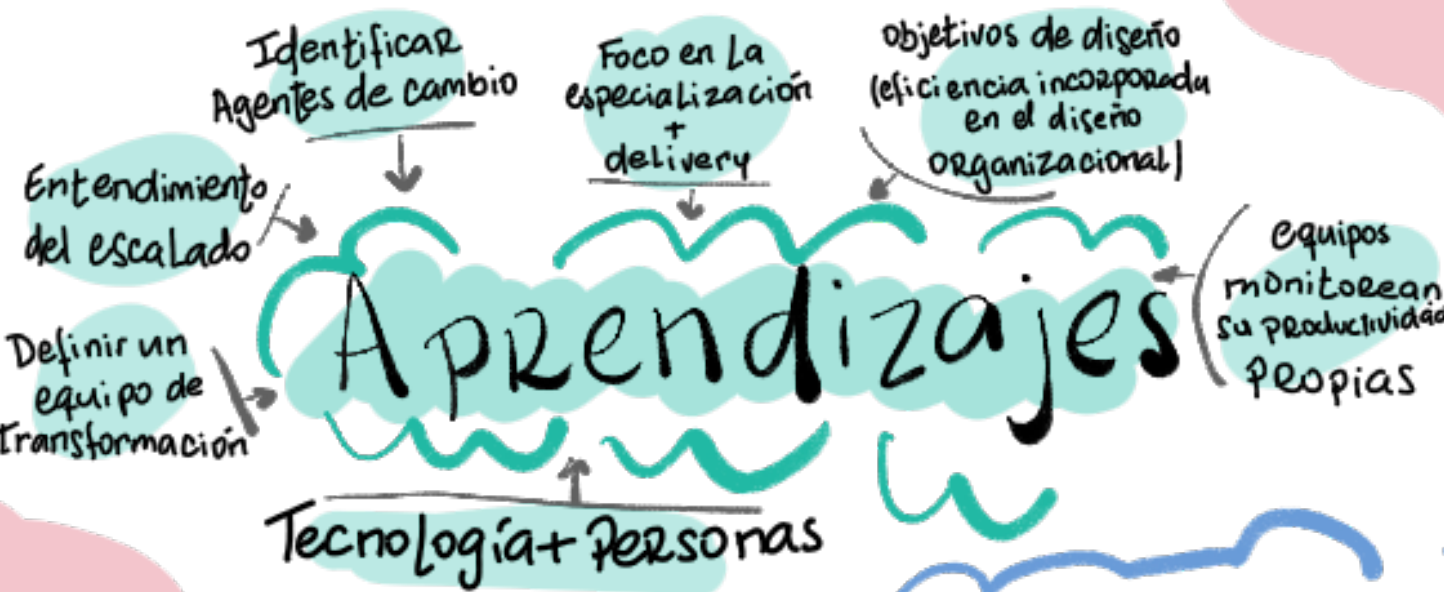 Identificar
Agentes de cambio
Foco en La
especialización
+
delivery
objetivos de diseño
(eficiencia incorporada
en el diseño
organizacional)
Entendimiento
del escalado
equipos
monitorean
su productividad
propias
Aprendizajes
Definir un
equipo de
transformación
Tecnología + Personas